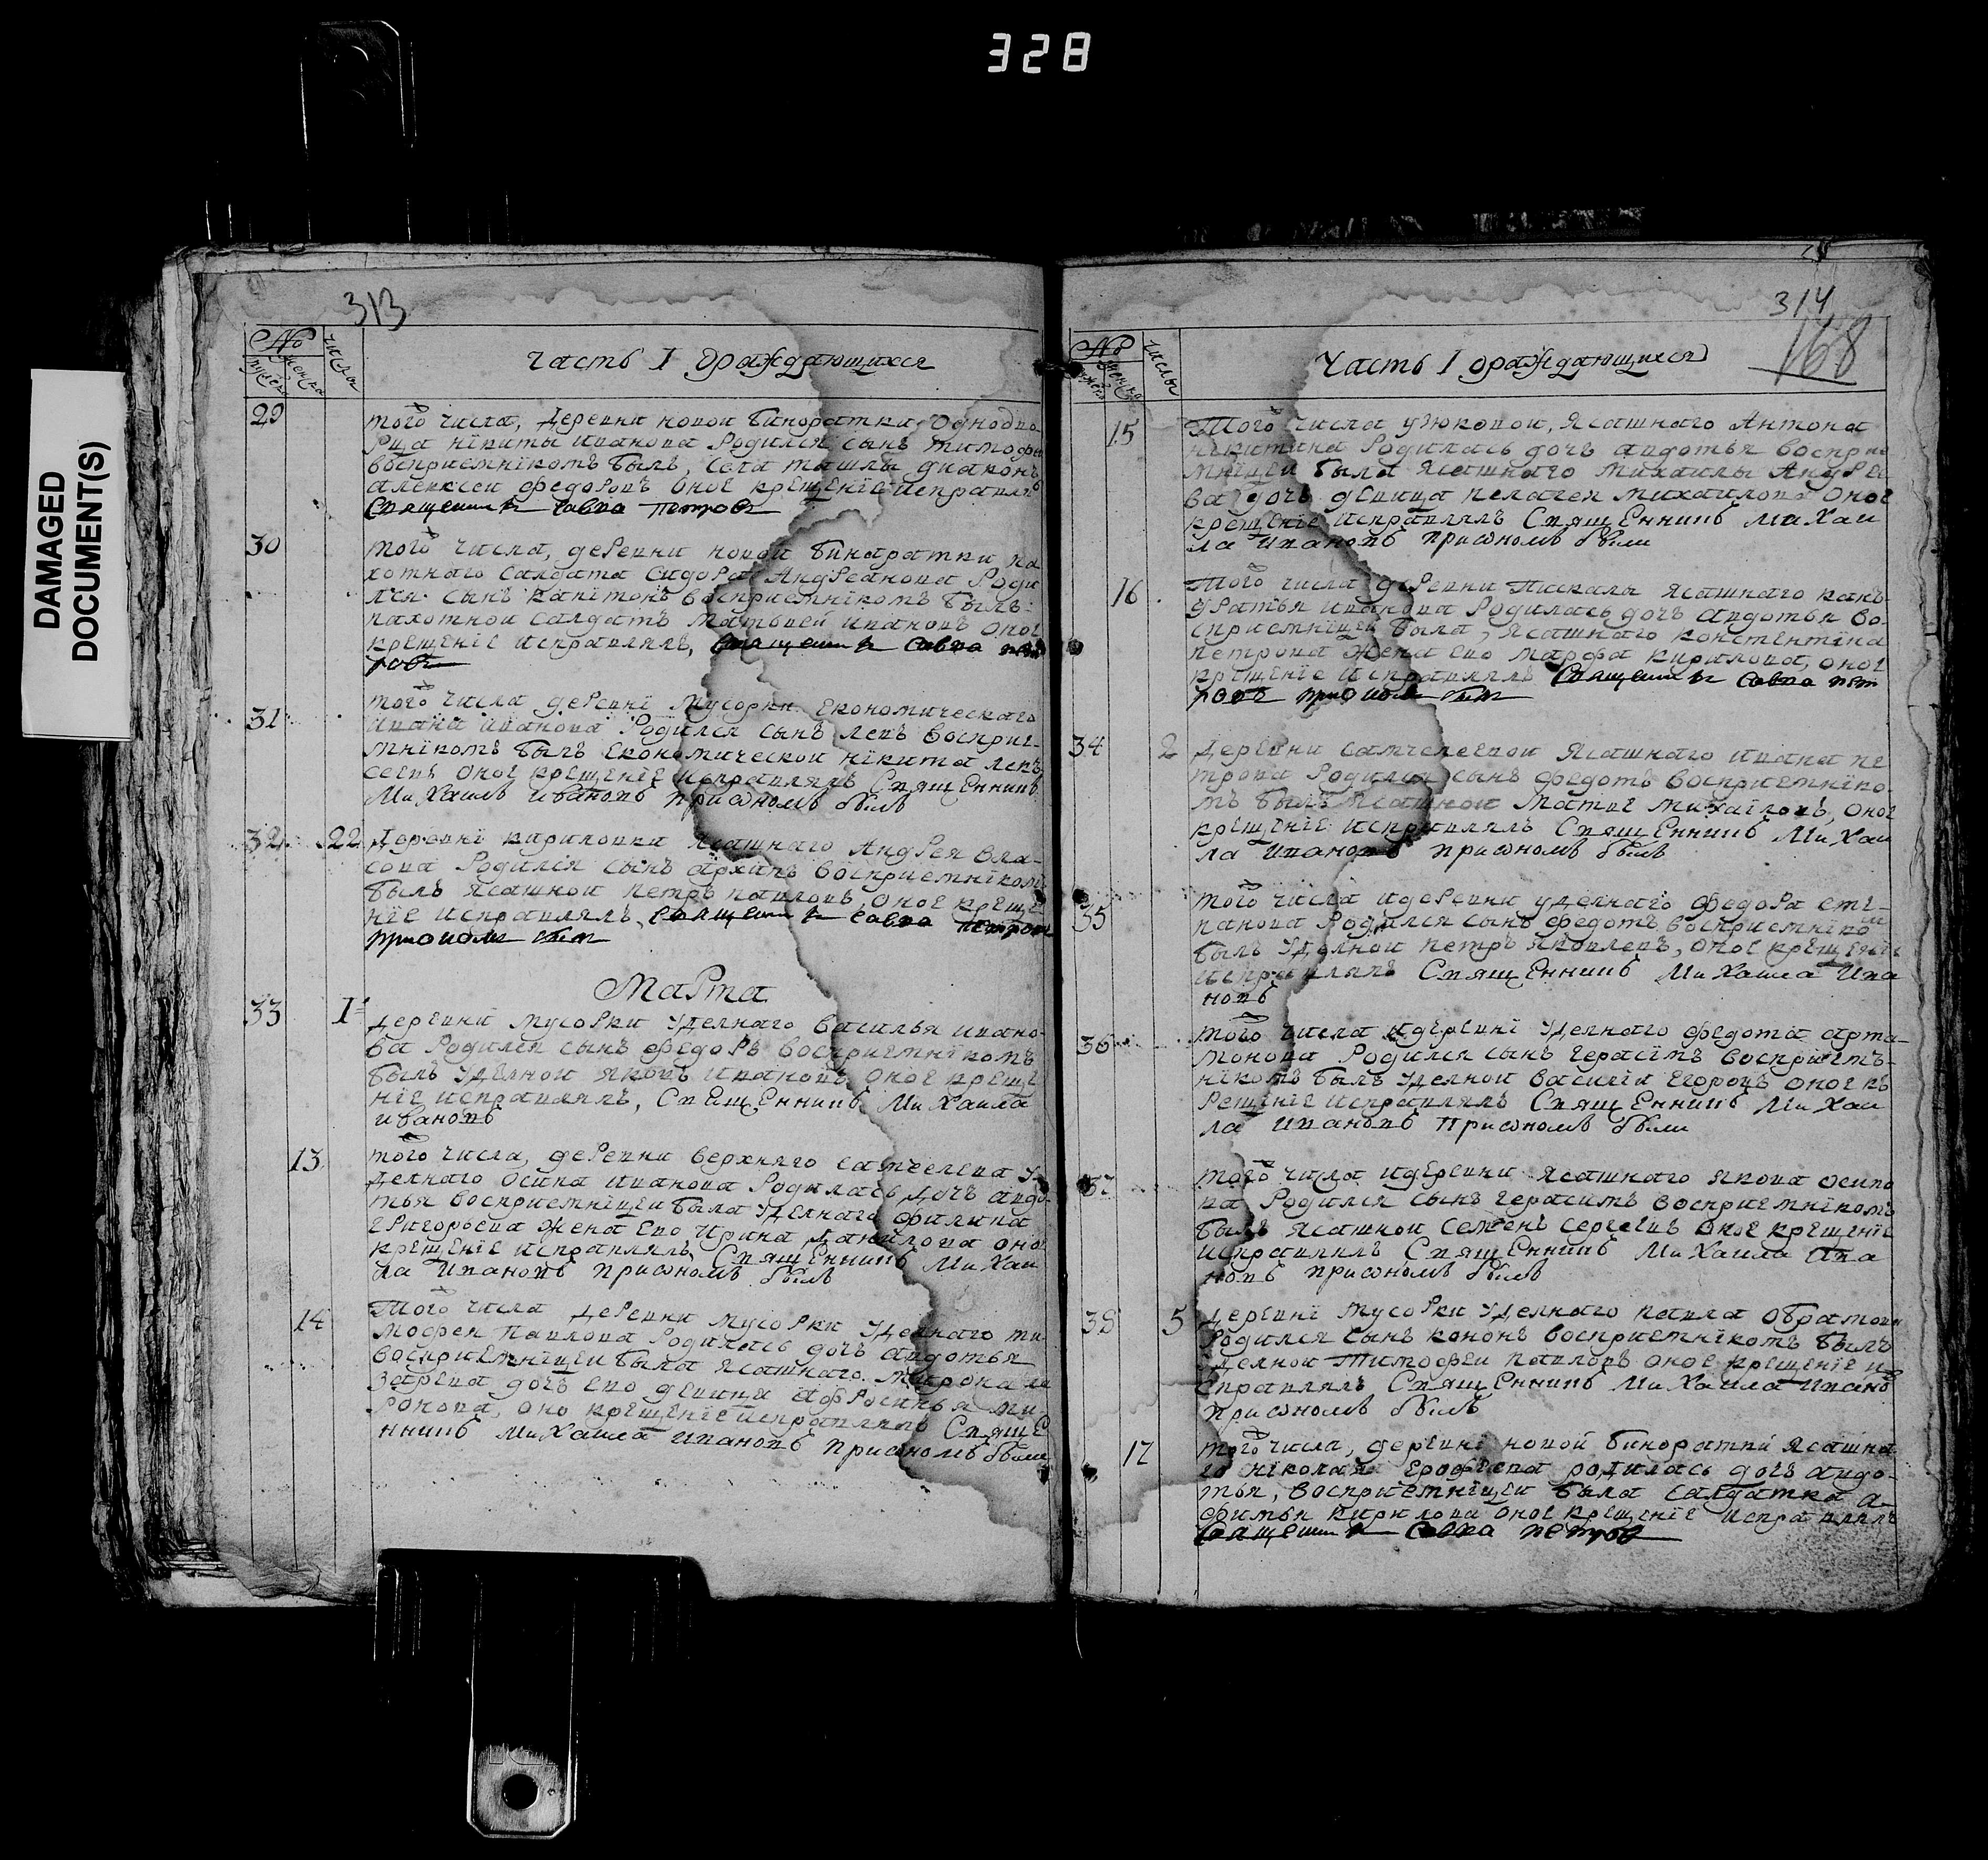 328
DAMAGED
DOCUMENT(S)
313
№
мужеска
женска
числы
часть I ораждающихся
29
того числа, деревни новой бинаратки однодво
рца нікиты иванова родился сынъ тимофеи
восприемнікомъ былъ, села ташлы диаконъ
алексеи федоровъ оное крещенїе исправлялъ
Священникъ савва петровъ
30
того числа, деревни новой бинаратки па
хотнаго салдата сидора андреанова роди
лся сынъ капітонъ восприемнікомъ былъ
пахотной салдатъ матвей ивановъ оное
крещенїе исправлялъ, священникъ савва пет
ровъ
31
того числа деревні мусорки економическаго
ивана иванова родился сынъ левъ восприе-
мнікомъ былъ економической нікита
оное крещенїе исправлялъ Священникъ
Михаилъ ивановъ приономъ былъ
32
22
деревні кириловки ясашнаго андрея вла-
сова родился сынъ архипъ восприемнікомъ
былъ ясашной петръ павловъ, оное креще
нїе исправлялъ, священникъ савва петровъ
приономъ былъ
Марта
33
1
деревни мусорки уделнаго василья ивано-
ва родился сынъ федоръ восприемнікомъ
былъ уделной яковъ ивановъ оное креще
нїе исправлялъ, Священникъ Михаила
ивановъ
13
того числа, деревни верхняго сатчелеева у
делнаго осипа иванова родилась дочь авдо
тья восприемніцеи была уделнаго филипа
григорьева жена ево ирина данилова оное
крещенїе исправлялъ Священникъ Михаи
ла ивановъ приономъ былъ
14
Того числа деревни мусорки уделнаго ти
мофея павлова родилась дочь авдотья
восприемніцеи была ясашнаго мирона ла
зарева дочь ево девица афросинья ми
ронова, оно крещенїе исправлялъ Свяще
нникъ Михаила ивановъ приономъ были
314
168
№
женска
числы
Часть I ораждающихся
15
Того числа узюковой, ясашнаго Антона
никитина родилась дочь авдотья воспри
мніцеи была ясашнаго михаилы Андрее
ва дочь девица пелагея михаилова оное
крещенїе исправлялъ Священникъ Михаи
ла ивановъ приономъ были
16
Того числа деревни Пискалы ясашнаго кан
дратья иванова родилась дочь авдотья во-
сприемніцеи была, ясашнаго константїна
петрова жена ево марфа кирилова, оное
крещенїе исправлялъ Священникъ савва пет
ровъ приономъ былъ
34
2
деревни сатчелеевой ясашнаго ивана пе
трова родился сынъ федотъ восприемніко-
мъ былъ ясашной матвеи михаіловъ, оное
крещенїе исправлялъ Священникъ Михаи
ла ивановъ приономъ былъ
35
того числа идеревни уделнаго федора сте-
панова родился сынъ федотъ восприемніком
былъ уделной петръ яковлевъ, оное крещенїе
исправлялъ Священникъ Михаила ива
новъ
36
того числа идеревні уделнаго федота арта-
монова родился сынъ герасімъ восприемъ-
нікомъ былъ уделной василіи егоровъ оное к
рещенїе исправлялъ Священникъ Михаи
ла ивановъ приономъ были
37
того числа идеревни ясашнаго якова осипо
ва родился сынъ герасимъ восприемнікомъ
былъ ясашной семенъ сергеевъ оное крещенїе
исправлялъ Священникъ Михаила ива
новъ приономъ былъ
38
5
деревні мусорки уделнаго павла
родился сынъ кононъ восприемнікомъ былъ
уделной тимофеи павловъ оное крещенїе и
справлялъ Священникъ Михаила ивано
приономъ былъ
17
того числа, деревні новой бинаратки ясашна
го нікола ерофеева родилась дочь авдо-
тья, восприемніцеи была салдатка а-
фимья кирилова оное крещенїе исправлялъ
священникъ савва петровъ